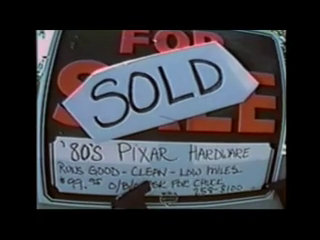 FOR
SALE
SOLD
'80'S PIXAR HARDWARE
RUNS GOOD - CLEAN - LOW MILES
$99.95 O/B/O ASK FOR CHUCK
258-8100